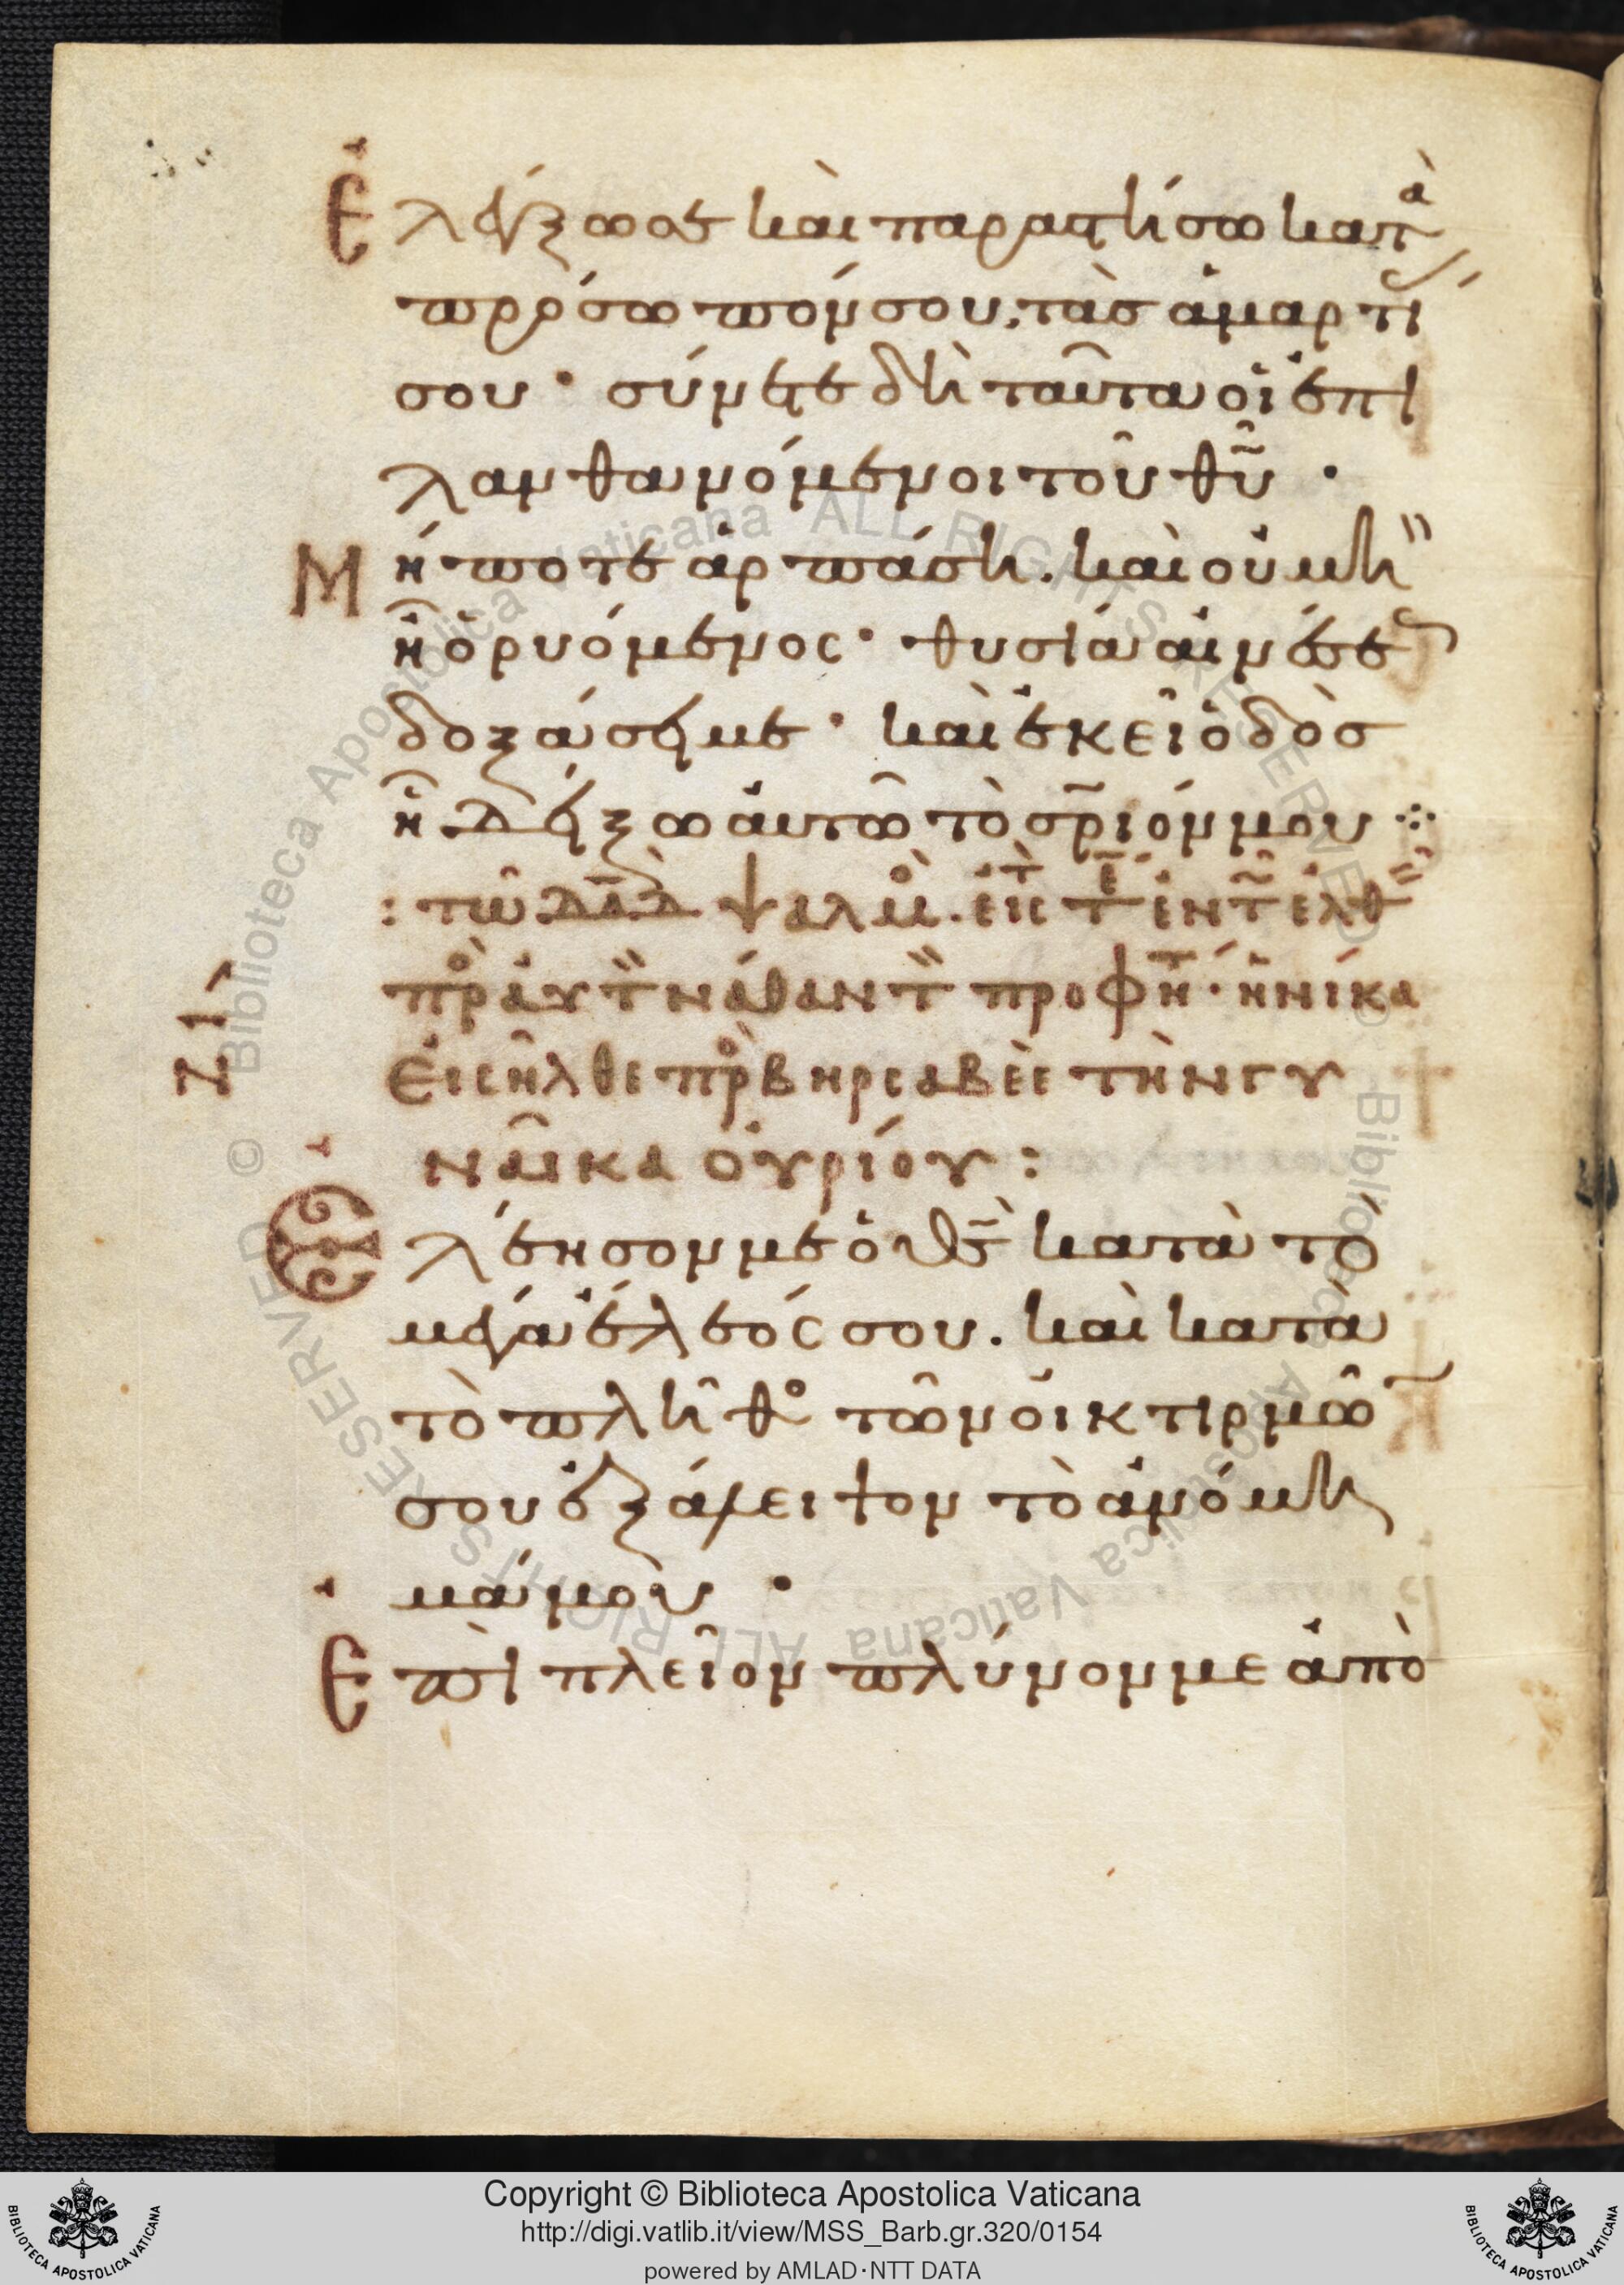 Ἐλέγξω σε καὶ παραστήσω κατὰ
πρόσωπόν σου, τὰς ἁμαρτί
σου · σύνετε δὴ ταῦτα οἱ ἐπι
λανθανόμενοι τοῦ θῦ ·
Μήποτε ἁρπάσῃ. καὶ οὐ μὴ
ᾖ ὁ ῥυόμενος · θυσία αἰνέσε
δοξάσει με · καὶ ἐκεῖ ὁδὸσ
ᾗ δείξω αὐτῶ τὸ σριόν μου ⁘
: τῶ δαδ ψαλμὸ. εἰς τ τε ἐν τ ἐλθ
πρὸ αὐτ νάθαν τ προφη · ἡνίκα
Εἰσῆλθε πρὸ βηρσαβεὲ τὴν γυ
ναῖκα οὐρίου :
Ἐλέησον με ὁ θς κατὰ τὸ
μέγα ἔλεός σου. καὶ κατὰ
τὸ πλῆθο τῶν οἰκτιρμῶ
σου ἐξάλειψον τὸ ἀνόμη
μά μου ·
Ἐπὶ πλεῖον πλύνον με ἀπὸ
Copyright © Biblioteca Apostolica Vaticana
http://digi.vatlib.it/view/MSS_Barb.gr.320/0154
powered by AMLAD·NTT DATA
BIBLIOTECA APOSTOLICA VATICANA
BIBLIOTECA APOSTOLICA VATICANA
© Biblioteca Apostolica Vaticana ALL RIGHTS RESERVED
© Biblioteca Apostolica Vaticana ALL RIGHTS RESERVED